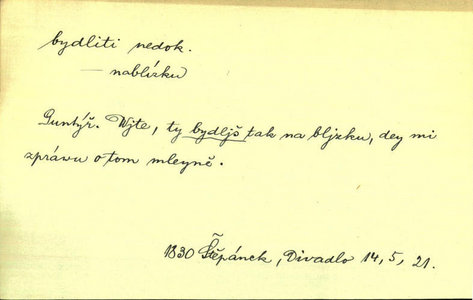 bydliti nedok.
— nablízku
Guntýř. Wjte, ty bydljš tak na bljzku, dey mi
zpráwu o tom mleyně.
1830 Štěpánek, Divadlo 14, 5, 21.